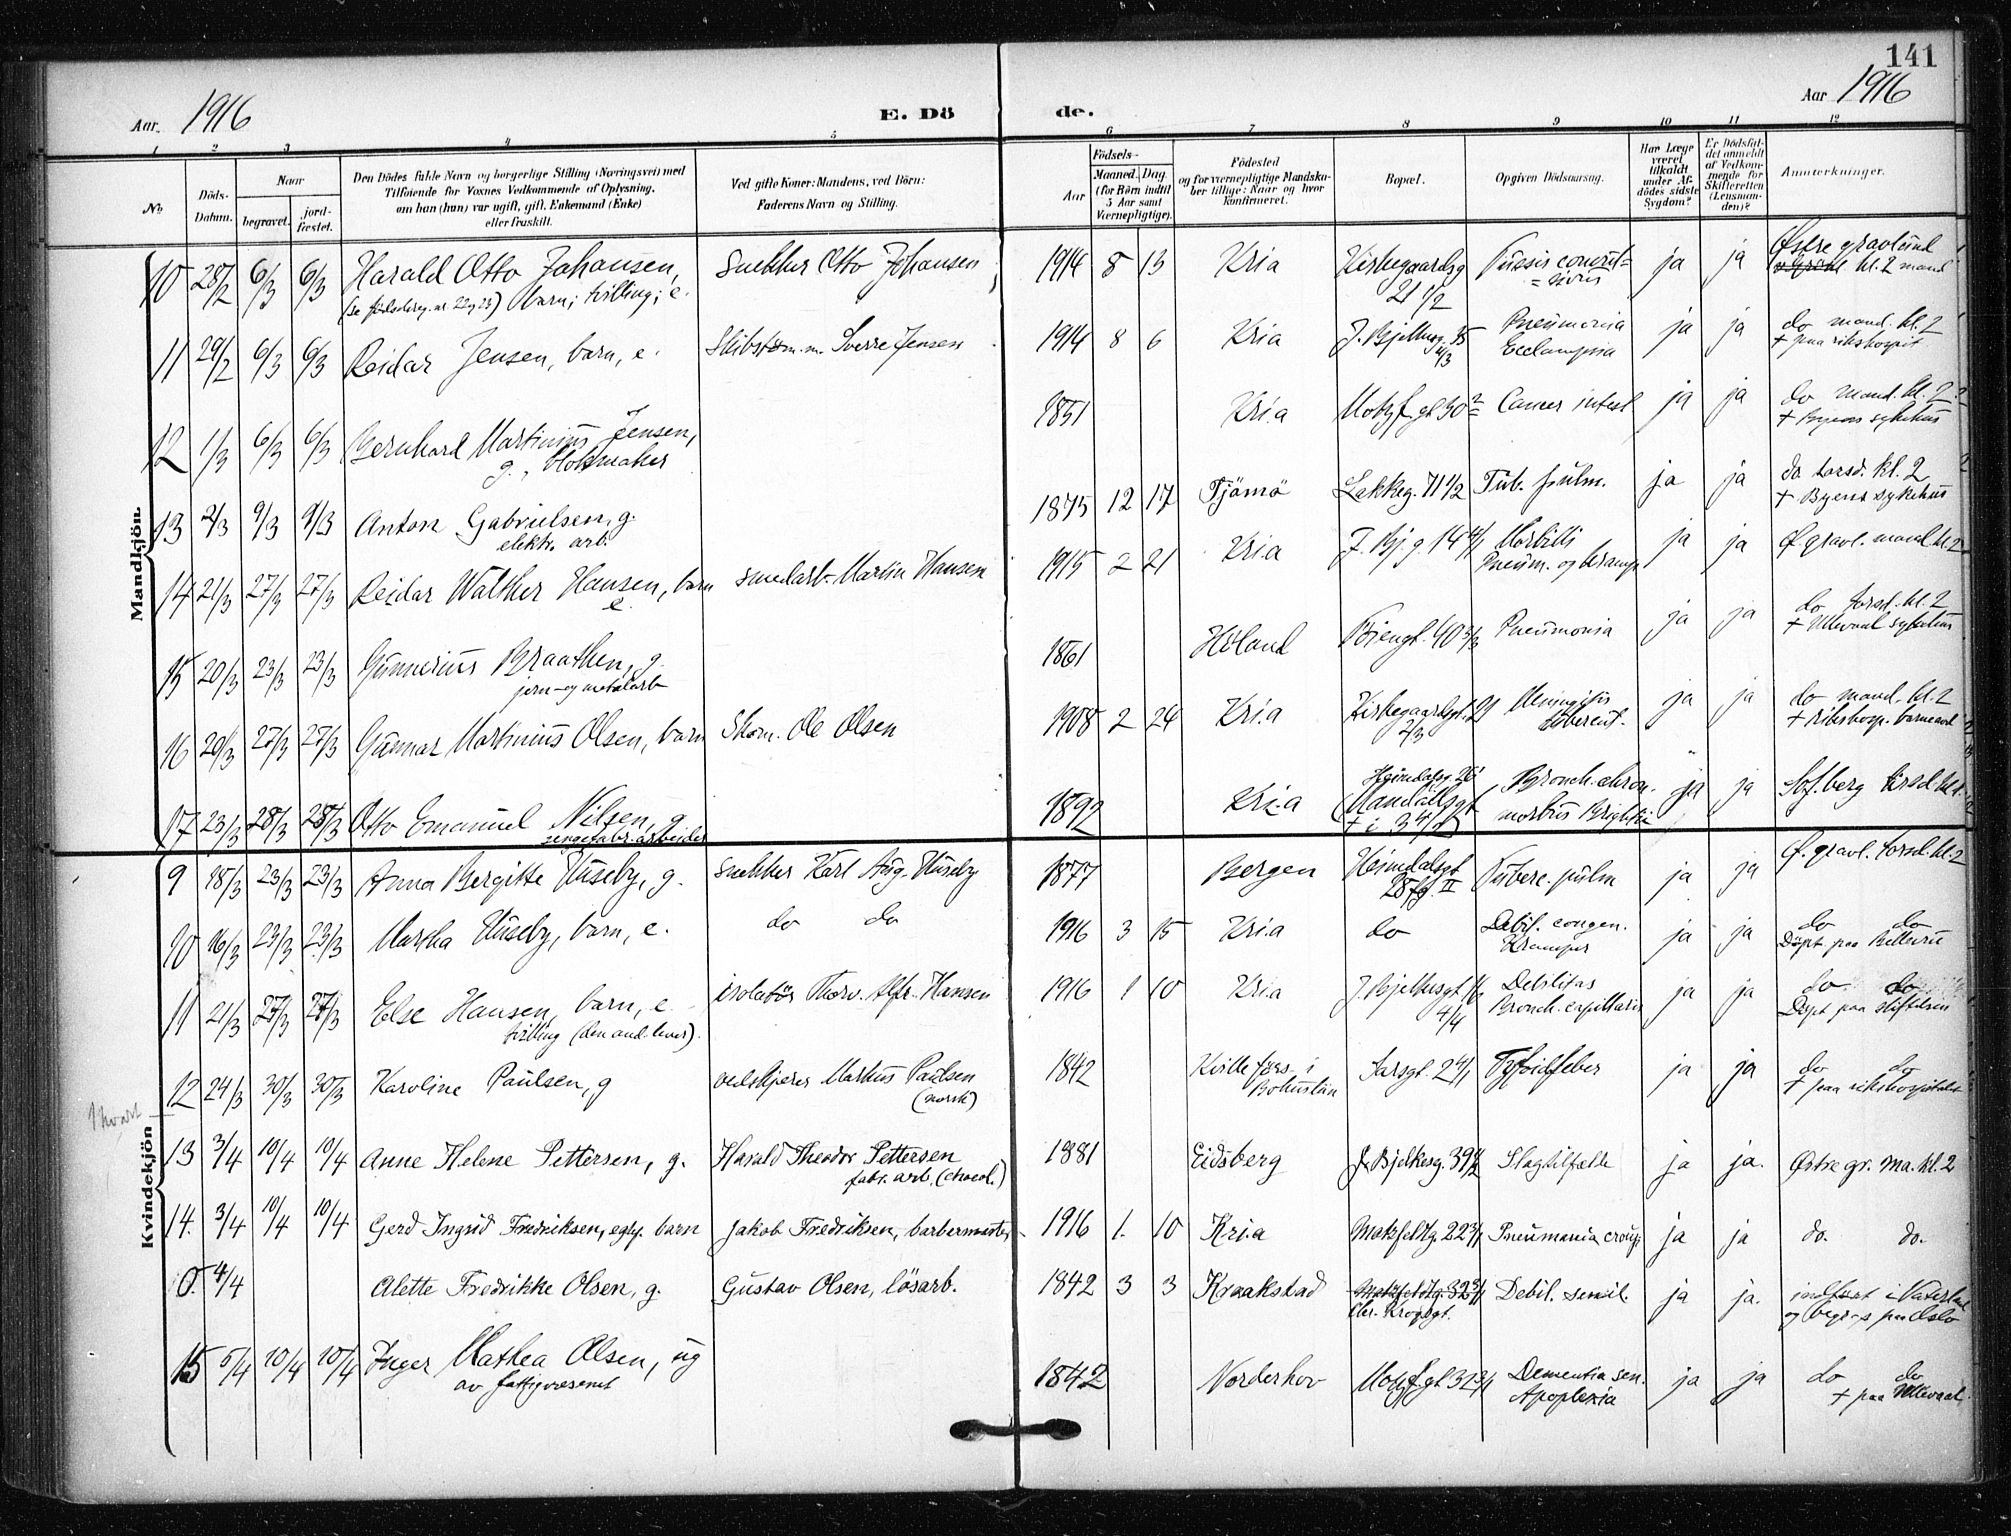 141
Aar. 1916
E. Dö
de.
Aar 1916
1 2 3 4 5 6 7 8 9 10 11 12
No
Döds-
Datum.
Naar
begravet.
jord-
fæstet.
Den Dödes fulde Navn og borgerlige Stilling (Næringsvei) med
Tilföiende for Voxnes Vedkommende af Oplysning,
om han (hun) var ugift, gift, Enkemand (Enke)
eller fraskilt.
Ved gifte Koner: Mandens, ved Börn:
Faderens Navn og Stilling.
Födsels-
Aar
Maaned. Dag
(for Börn indtil
5 Aar samt
Værnepligtige).
Födested
og for værnepligtige Mandska-
ber tillige: Naar og hvor
Konfirmeret.
Bopæl.
Opgiven Dödsaarsag.
Har Læge
været
tilkaldt
under Af-
dödes sidste
Sygdom?
Er Dödsfal-
det anmeldt
af Vedkom-
mende for
Skifteretten
(Lensman-
den)?
Anmærkninger.
Mandkjön.
10 28/2 6/3 6/3 Harald Otto Johansen, Snekker Otto Johansen 1914 8 13 Kria Kirkegaardsg Tussis convul= ja ja Østre gravlund
(se fødselsreg. nr 22 og 23) barn; tvilling; e. 21 1/2 =sivus kl. 2 mand
11 29/2 6/3 6/3 Reidar Jensen, barn, e. Skibstøm.m. Sverre Jensen 1914 8 6 Kria J. Bjelkesg. 35 Pneumonia ja ja do mand. kl. 2
Eclampsia + paa rikshospit
12 1/3 6/3 6/3 Bernhard Martinius Jensen, 1851 Kria Motzf.gt 30 Cancer intest ja ja do mand. kl. 2
g., blokmaker + Byens sykehus
13 2/3 9/3 9/3 Anton Gabrielsen, g. 1875 12 17 Tjömö Lakkeg. 71 1/2 Tub. pulm. ja ja do torsd. kl. 2
elektr. arb. + Byens sykehus
14 21/3 27/3 27/3 Reidar Walther Hansen, barn smedarb. Martin Hansen 1915 2 21 Kria J. Bj. g 14 4/1 Morbilli ja ja Ø gravl. mand kl. 2
e. Pneum. og
15 20/3 23/3 23/3 Gunnerius Braathen, g. 1861 Höland Töiengt. 40 3/3 Pneumonia ja ja do torsd. kl. 2
jern- og metalarb + Ullevaal sykehus
16 20/3 27/3 27/3 Gunnar Martinius Olsen, barn Skom. Ole Olsen 1908 2 24 Kria Kirkegaardsgt. 21 Meningitis ja ja do mand. kl. 2
2/3 tubercul. + rikshosp. barneavd
17 23/3 28/3 28/3 Otto Emanuel Nilsen, g. 1892 Kria Heimdalsg. 26 Bronch. chron. ja ja Sof.berg tirsd. kl.
sengefabr. arbeider morbus Brightii
Kvindekjön
9 18/3 23/3 23/3 Anna Bergitte Huseby, g. snekker Karl Aug. Huseby 1877 Bergen Heimdalsgt Tuberc. pulm ja ja Ø. gravl. torsd. kl. 2
10 16/3 23/3 23/3 Martha Huseby, barn, e. do do 1916 3 15 Kria do Debil. congen. ja ja do do
Kramper Döpt paa Bellevue
11 21/3 27/3 27/3 Else Hansen, barn, e. isolatör Thorv. Alfr. Hansen 1916 1 10 Kria J. Bjelkesgt Debilitas ja ja do do
tvilling (den and. lever). 4/4 Bronch. capillaris Döpt paa stiftelsen
12 24/3 30/3 30/3 Karoline Paulsen, g vedskjærer Markus Paulsen 1842 Kville förs. i Sarsgt. 2 4/1 Tyfoidfeber ja ja do do
(norsk) Bohuslän + paa rikshospitalet
13 3/4 10/4 10/4 Anne Helene Pettersen, g. Harald Theodor Pettersen 1881 Eidsberg J. Bjelkesg. 39 Slagtilfælde ja ja. Østre gr. ma. kl. 2
fabr. arb. (chocol.)
14. 3/4 10/4 10/4 Gerd Ingrid Fredriksen, egtf. barn Jakob Fredriksen, barbermester 1916 1. 10 Kria Motzfeldtg. 22 3/1 Pneumonia croup. ja ja do. do.
0. 4/4 Alette Fredrikke Olsen, g. Gustav Olsen, lösarb. 1842 3 3 Kraakstad Motzfeldtg. 32 3/1 Debil. senil. ja ja. indfört i Vaterland
Chr. Kroghsgt. og begr. paa Oslo
15 5/4 10/4 10/4 Inger Mathea Olsen, ug 1842 Norderhov Motzf.gt 32 3/1 Dementia sen. ja ja do do
av fattigvæsenet Apoplexia + paa Ullevaal